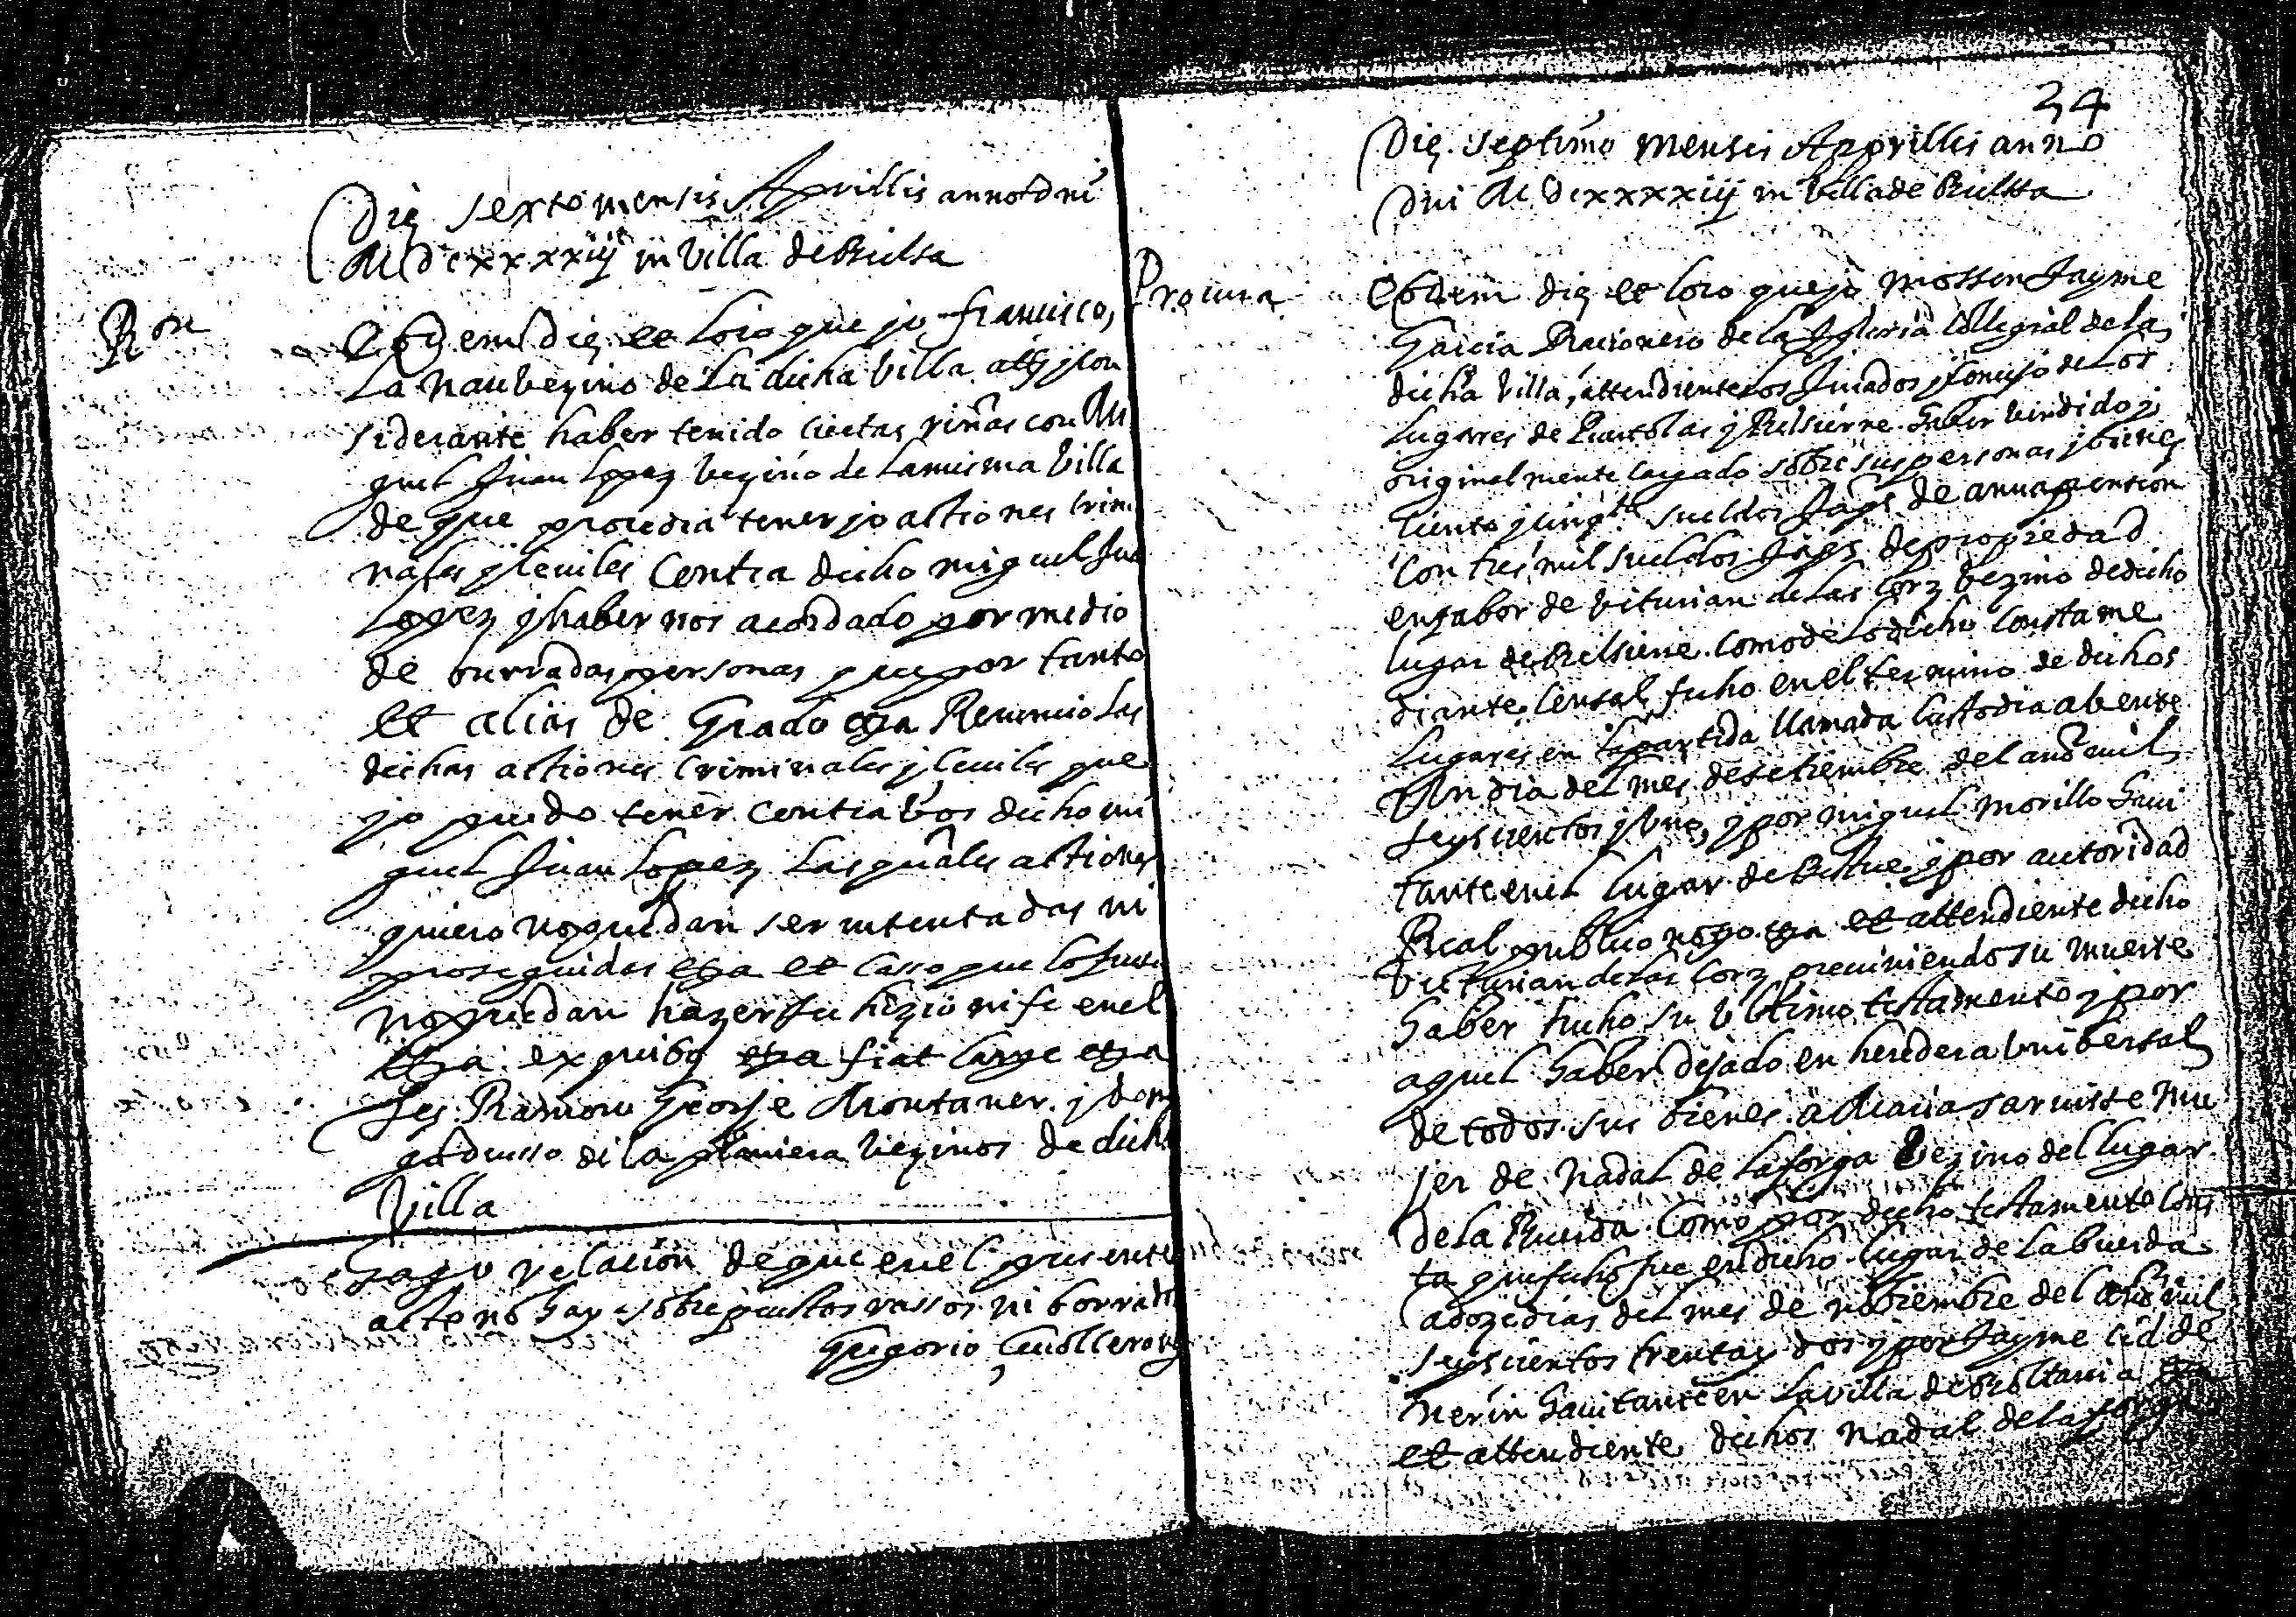 Die sexto mensis Aprillis anno dni
M dcxxxxiij in villa de Bielsa
Ron
Eodem die et loco que jo francisco
La nau vezino de la dicha villa att j con
siderante haber tenido ciertas riñas con Mi
guel Juan Lopez vezino de la misma villa
de que procedia tener jo actiones crimi
nales j ceviles contra dicho miguel Jua
Lopez j haber nos acordado por medio
de onrradas personas que por tanto
et alias de Grado etza Renuncio las
dichas actiones criminales j ceviles que
jo puedo tener contra bos dicho mi
guel Juan Lopez las quales actiones
quiero no puedan ser intentadas ni
proseguidas etza et casso que lo fuessen
no puedan hazer fee en juizio ni fe en el
etza ex quibs etza fiat large etza
Tes Ramon George Montaner j dom
de la planiera vezinos de dicha
Villa
Hago relacion de que en el presente
acto no hay sobrepuestos rassos ni borrados
Gregorio
34
Die septimo mensis Apprillis anno
Dni M dcxxxxiij in villa de Bielssa
Procura
Eodem die et loco que jo mossen Jayme
Garcia Racionero de la Iglesia Collegial de la
dicha villa, attendiente los Jurados j concejo de los
lugares de Puertolas j Belsierre haber bendido j
originalmente cargado sobre sus personas j bienes
ciento j cinqta sueldos Jaqs de annua pencion
con tres mil sueldos Jaqs de propiedad
en fabor de biturian de las corz vezino de dicho
lugar de Belsierre como de lo dicho consta me
diante censal fecho en el termino de dichos
lugares en la partida llamada
un dia del mes de setiembre del año mil
seyscientos j uno, j por miguel Morillo havi
tante en el lugar de j por autoridad
Real publico noto etza et attendiente dicho
bicturian de las corz previniendo su muerte
haber hecho su ultimo testamento j por
aquel haber dejado en heredera unibersal
de todos sus bienes a Maria sarvisse mu
jer de nadal de la forga vezino del lugar
de la Buerda como por dicho testamento cons
ta que fecho fue en dicho lugar de la buerda
a doze dias del mes de nobiembre del año mil
seyscientos trenta y dos j por Jayme cid de
nerin havitante en la villa de boltania etza
et attendiente dichos nadal de la forga